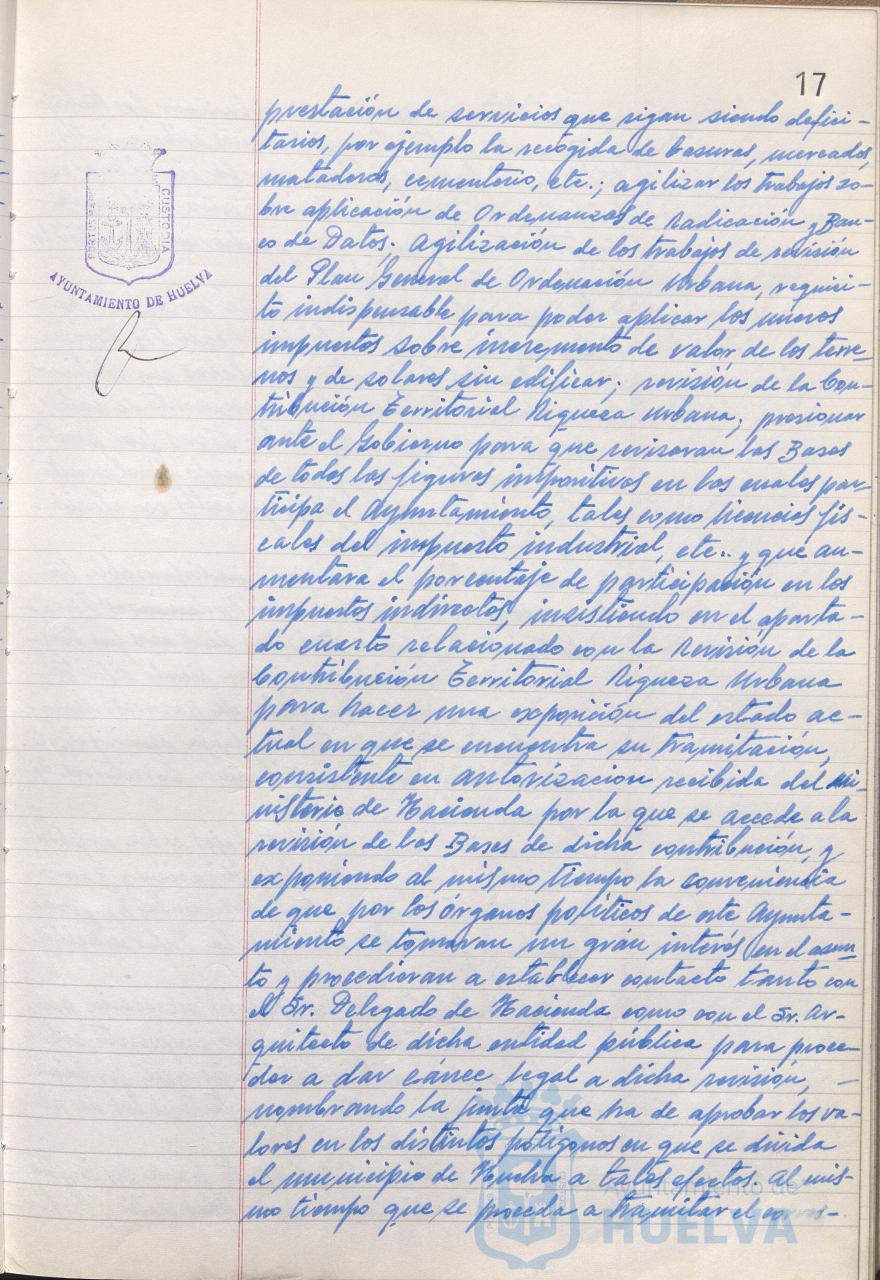 17
prestación de servicios que sigan siendo defici-
tarios, por ejemplo la recogida de basuras, mercados,
mataderos, cementerio, etc.; agilizar los trabajos so-
bre aplicación de Ordenanzas de Radicación y Ban-
co de Datos. Agilización de los trabajos de revisión
del Plan General de Ordenación Urbana, requisi-
to indispensable para poder aplicar los nuevos
impuestos sobre incremento de valor de los terre-
nos y de solares sin edificar; revisión de la Con-
tribución Territorial Riqueza Urbana; presionar
ante el Gobierno para que revisaran las Bases
de todas las figuras impositivas en las cuales par-
ticipa el Ayuntamiento, tales como licencias fis-
cales del impuesto industrial, etc.. y que au-
mentara el porcentaje de participación en los
impuestos indirectos, insistiendo en el aparta-
do cuarto relacionado con la Revisión de la
Contribución Territorial Riqueza Urbana
para hacer una exposición del estado ac-
tual en que se encuentra su tramitación,
consistente en autorización recibida del Mi-
nisterio de Hacienda por la que se accede a la
revisión de las Bases de dicha contribución, y
exponiendo al mismo tiempo la conveniencia
de que por los órganos políticos de este Ayunta-
miento se tomaran un grán interés en el asun-
to y procedieran a establecer contacto tanto con
el Sr. Delegado de Hacienda como con el Sr. Ar-
quitecto de dicha entidad pública para proce-
der a dar cáuce legal a dicha revisión, -
nombrando la junta que ha de aprobar los va-
lores en los distintos polígonos en que se divida
el municipio de Huelva a tales efectos. Al mis-
mo tiempo que se proceda a tramitar el corres-
PORTUS MARIS
CUSTODIA
AYUNTAMIENTO DE HUELVA
Ayuntamiento de
HUELVA